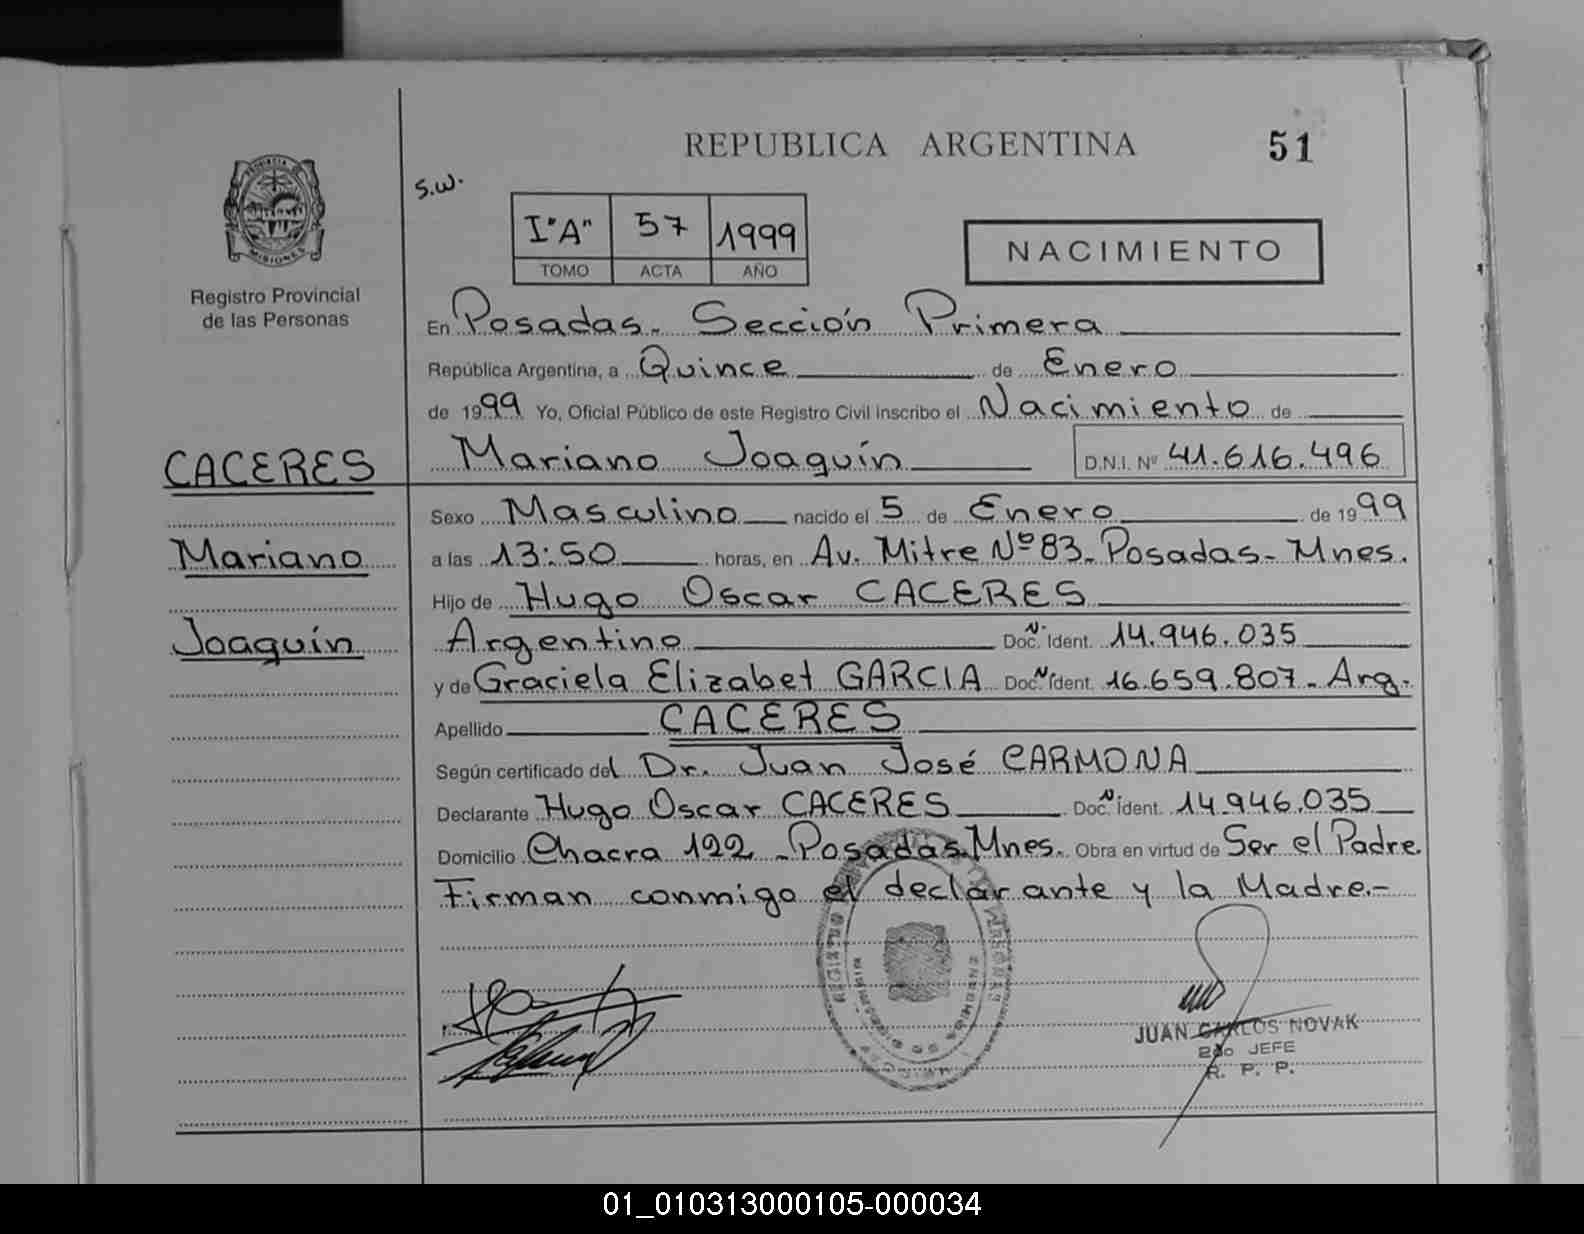 REPUBLICA ARGENTINA
51
PROVINCIA
MISIONES
Registro Provincial
de las Personas
S.W.
I"A" 57 1999
TOMO ACTA AÑO
NACIMIENTO
En Posadas. Sección Primera
República Argentina, a Quince de Enero
de 1999 Yo, Oficial Público de este Registro Civil inscribo el Nacimiento de
Mariano Joaquín D.N.I. Nº 41.616.496
CACERES
Mariano
Joaquín
Sexo Masculino nacido el 5 de Enero de 1999
a las 13:50 horas, en Av. Mitre Nº 83. Posadas - Mnes.
Hijo de Hugo Oscar CACERES
Argentino Doc. N. Ident. 14.946.035
y de Graciela Elizabet GARCIA Doc. N Ident. 16.659.807 - Arg.
Apellido CACERES
Según certificado del Dr. Juan José CARMONA
Declarante Hugo Oscar CACERES Doc. N. Ident. 14.946.035
Domicilio Chacra 122 - Posadas. Mnes. Obra en virtud de Ser el Padre.
Firman conmigo el declarante y la Madre.-
JUAN CARLOS NOVAK
2do JEFE
R. P. P.
01_010313000105-000034